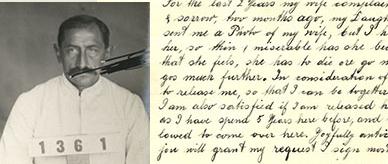 For the last 2 Years my wife complain
& sorrow, two months ago, my Daught
sent me a Photo of my wife, but I h
her, so thin & miserable has she be
that she fiels, she has to die ore go m
gos much further. In consideration of
to release me, so that I can be togethe
I am also satisfied if I am released
as I have spend 5 Years here before, and
lowed to come over here. Joyfully
you will grant my request I sign mos
1361